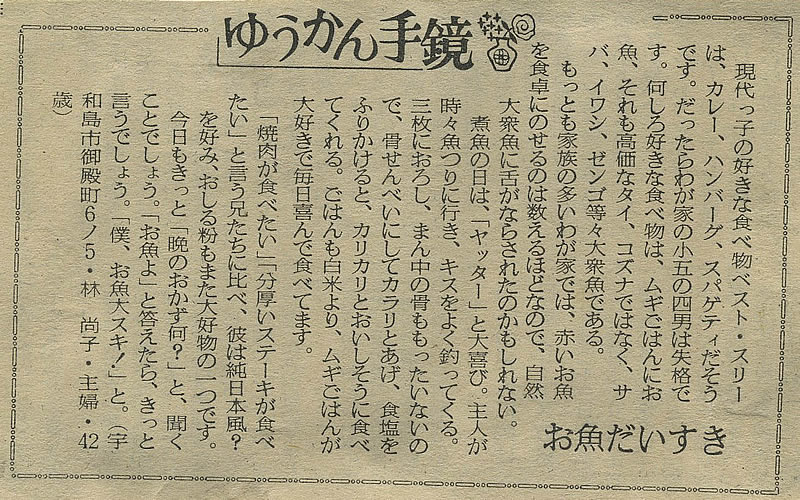 ゆうかん手鏡
お魚だいすき
現代っ子の好きな食べ物ベスト・スリー
は、カレー、ハンバーグ、スパゲティだそう
です。だったらわが家の小五の四男は失格で
す。何しろ好きな食べ物は、ムギごはんにお
魚、それも高価なタイ、コズナではなく、サ
バ、イワシ、ゼンゴ等々大衆魚である。
もっとも家族の多いわが家では、赤いお魚
を食卓にのせるのは数えるほどなので、自然
大衆魚に舌がならされたのかもしれない。
煮魚の日は、「ヤッター」と大喜び。主人が
時々魚つりに行き、キスをよく釣ってくる。
三枚におろし、まん中の骨ももったいないの
で、骨せんべいにしてカラリとあげ、食塩を
ふりかけると、カリカリとおいしそうに食べ
てくれる。ごはんも白米より、ムギごはんが
大好きで毎日喜んで食べてます。
「焼肉が食べたい」「分厚いステーキが食べ
たい」と言う兄たちに比べ、彼は純日本風?
を好み、おしる粉もまた大好物の一つです。
今日もきっと「晩のおかず何?」と、聞く
ことでしょう。「お魚よ」と答えたら、きっと
言うでしょう。「僕、お魚大スキ!」と。(宇
和島市御殿町6ノ5・林 尚子・主婦・42
歳)